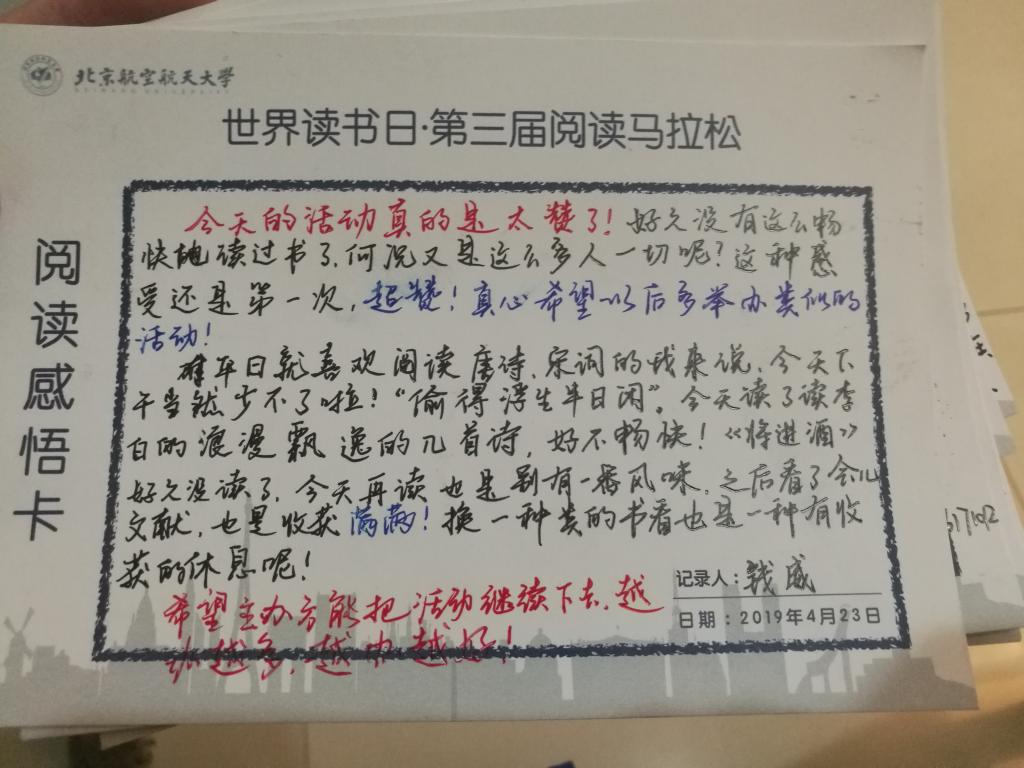 北京航空航天大学
BEIHANG UNIVERSITY
世界读书日·第三届阅读马拉松
阅读感悟卡
今天的活动真的是太赞了！好久没有这么畅
快地读过书了,何况又是这么多人一切呢？这种感
受还是第一次,超赞！真心希望以后多举办类似的
活动！
对平日就喜欢阅读唐诗、宋词的我来说,今天下
午当然少不了啦！“偷得浮生半日闲”。今天读了读李
白的浪漫飘逸的几首诗,好不畅快！《将进酒》
好久没读了,今天再读也是别有一番风味,之后看了会儿
文献,也是收获满满！换一种类的书看也是一种有收
获的休息呢！
希望主办方能把活动继续下去,越
办越多,越办越好！
记录人：钱威
日期：2019年4月23日